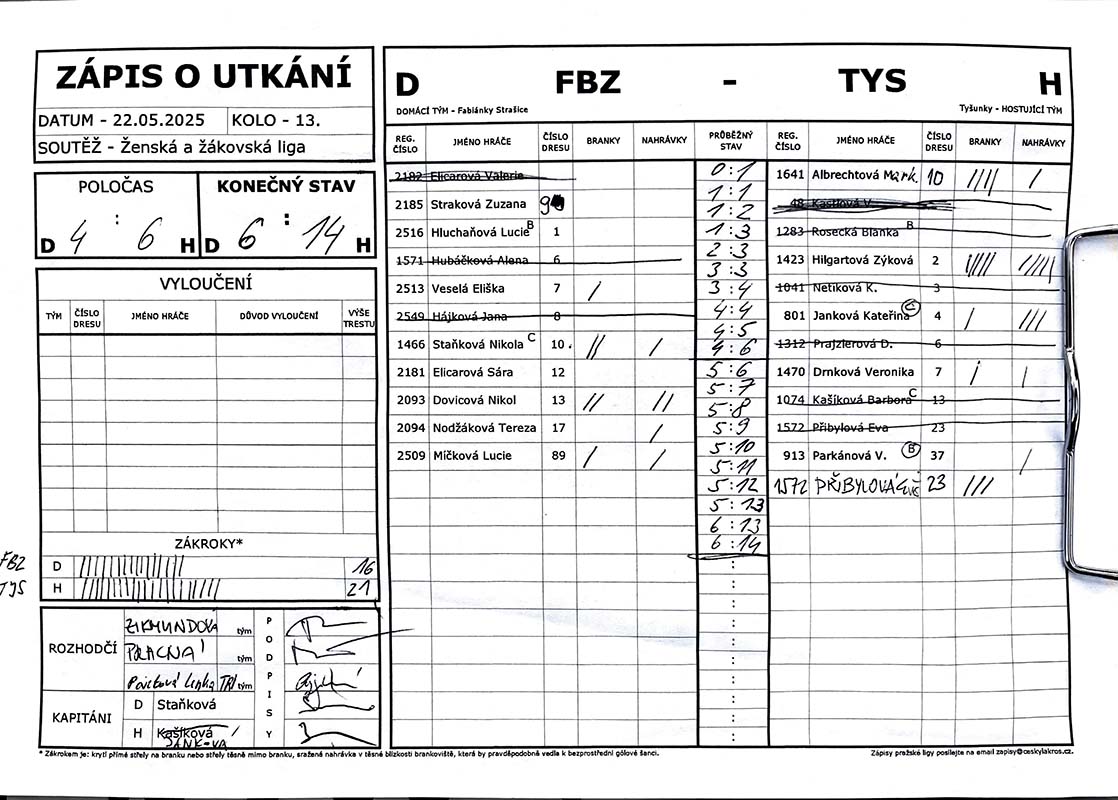 ZÁPIS O UTKÁNÍ
DATUM - 22.05.2025 KOLO - 13.
SOUTĚŽ - Ženská a žákovská liga
POLOČAS KONEČNÝ STAV
D 4 : 6 H D 6 : 14 H
VYLOUČENÍ
TÝM ČÍSLO DRESU JMÉNO HRÁČE DŮVOD VYLOUČENÍ VÝŠE TRESTU
ZÁKROKY*
FBZ D 16
TYS H 21
ROZHODČÍ
ZIKMUNDOVÁ tým
PRACNÁ tým
Lenka TRI tým
PODPISY
KAPITÁNI
D Staňková
H Kašíková
JANKOVÁ
D FBZ - TYS H
DOMÁCÍ TÝM - Fabiánky Strašice Tyšunky - HOSTUJÍCÍ TÝM
REG. ČÍSLO JMÉNO HRÁČE ČÍSLO DRESU BRANKY NAHRÁVKY PRŮBĚŽNÝ STAV REG. ČÍSLO JMÉNO HRÁČE ČÍSLO DRESU BRANKY NAHRÁVKY
2182 Elicarová Valerie
2185 Straková Zuzana 9
2516 Hluchaňová Lucie B 1
1571 Hubáčková Alena 6
2513 Veselá Eliška 7 /
2549 Hájková Jana 8
1466 Staňková Nikola C 10 // /
2181 Elicarová Sára 12
2093 Dovicová Nikol 13 // //
2094 Nodžáková Tereza 17 /
2509 Míčková Lucie 89 / /
0:1
1:1
1:2
1:3
2:3
3:3
3:4
4:4
4:5
4:6
5:6
5:7
5:8
5:9
5:10
5:11
5:12
5:13
6:13
6:14
1641 Albrechtová Mark. 10 //// /
48 Kastlová V.
1283 Rosecká Blanka B
1423 Hilgartová Zýková 2 ///// /////
1041 Netíková K. 3
801 Janková Kateřina C 4 / ///
1312 Prajzlerová D. 6
1470 Drnková Veronika 7 / /
1074 Kašíková Barbora C 13
1572 Přibylová Eva 23
913 Parkánová V. B 37 /
1572 PŘIBYLOVÁ Eva 23 ///
* Zákrokem je: krytí přímé střely na branku nebo střely těsně mimo branku, sražená nahrávka v těsné blízkosti brankoviště, která by pravděpodobně vedla k bezprostřední gólové šanci.
Zápisy pražské ligy posílejte na email zapisy@ceskylakros.cz.